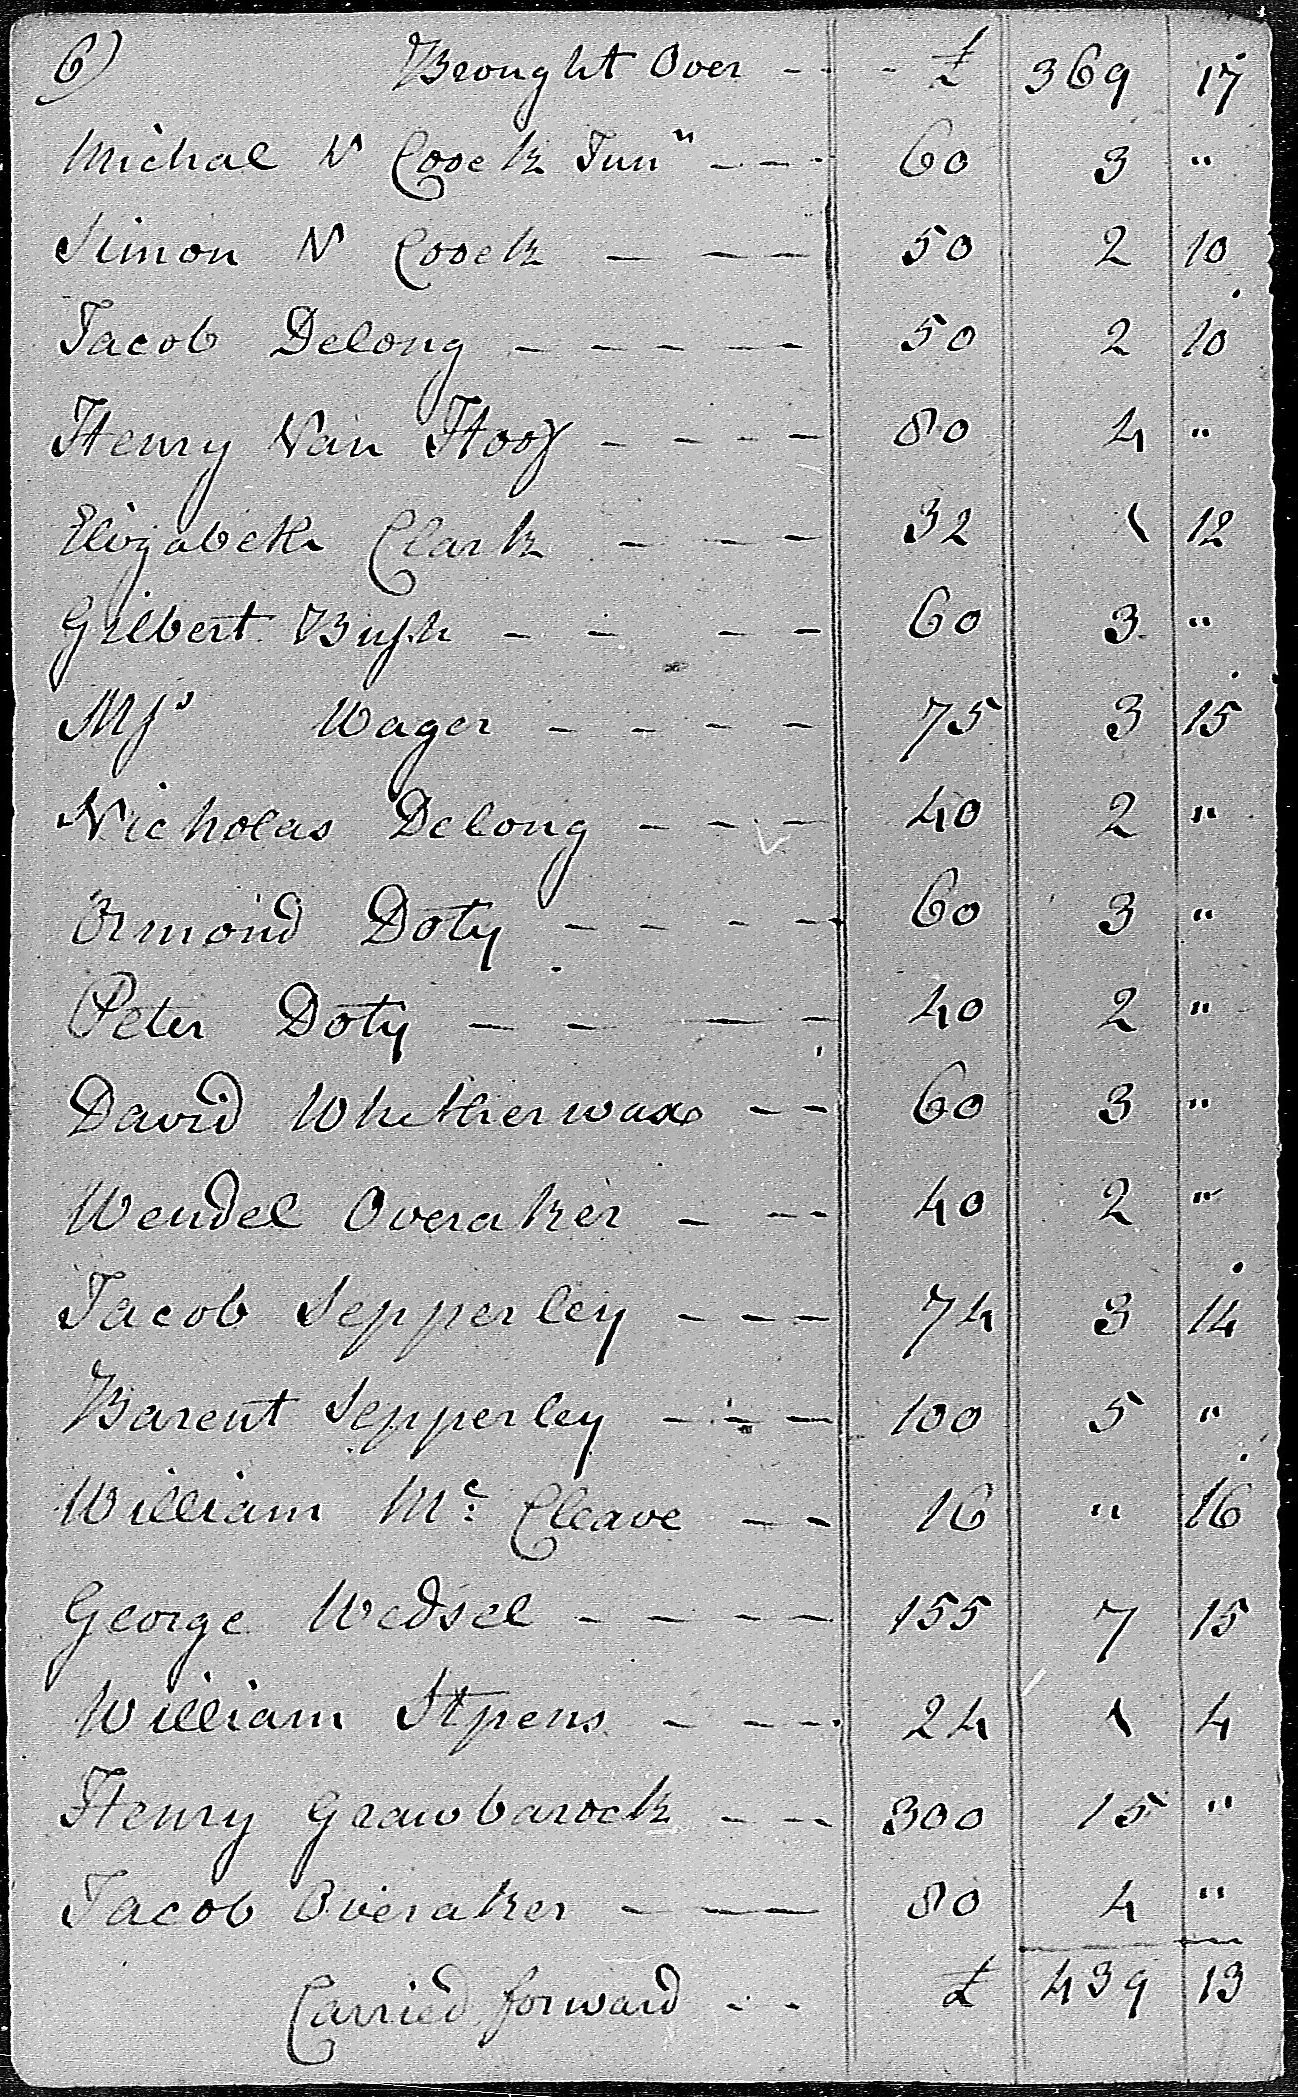 6) Brought Over - - - £ 369 17
Michal V Coock Jun" - - - 60 3 "
Simon V Coock - - - 50 2 10
Jacob Delong - - - - - 50 2 10
Henry Van Hoof - - - - 80 4 "
Elizabeth Clark - - - 32 1 12
Gilbert Bush - - - - 60 3 "
Mrs Wager - - - - 75 3 15
Nicholas Delong - - - 40 2 "
Ormond Doty - - - - 60 3 "
Peter Doty - - - - 40 2 "
David Whetherwax - - 60 3 "
Wendel Overaker - - - 40 2 "
Jacob Sepperley - - - 74 3 14
Barent Sepperley - - - 100 5 "
William Mc: Cleave - - 16 " 16
George Wedsel - - - - 155 7 15
William Stpens - - - - 24 1 4
Henry Grawbarock - - - 300 15 "
Jacob Overaker - - - 80 4 "
Carried forward - - £ 439 13